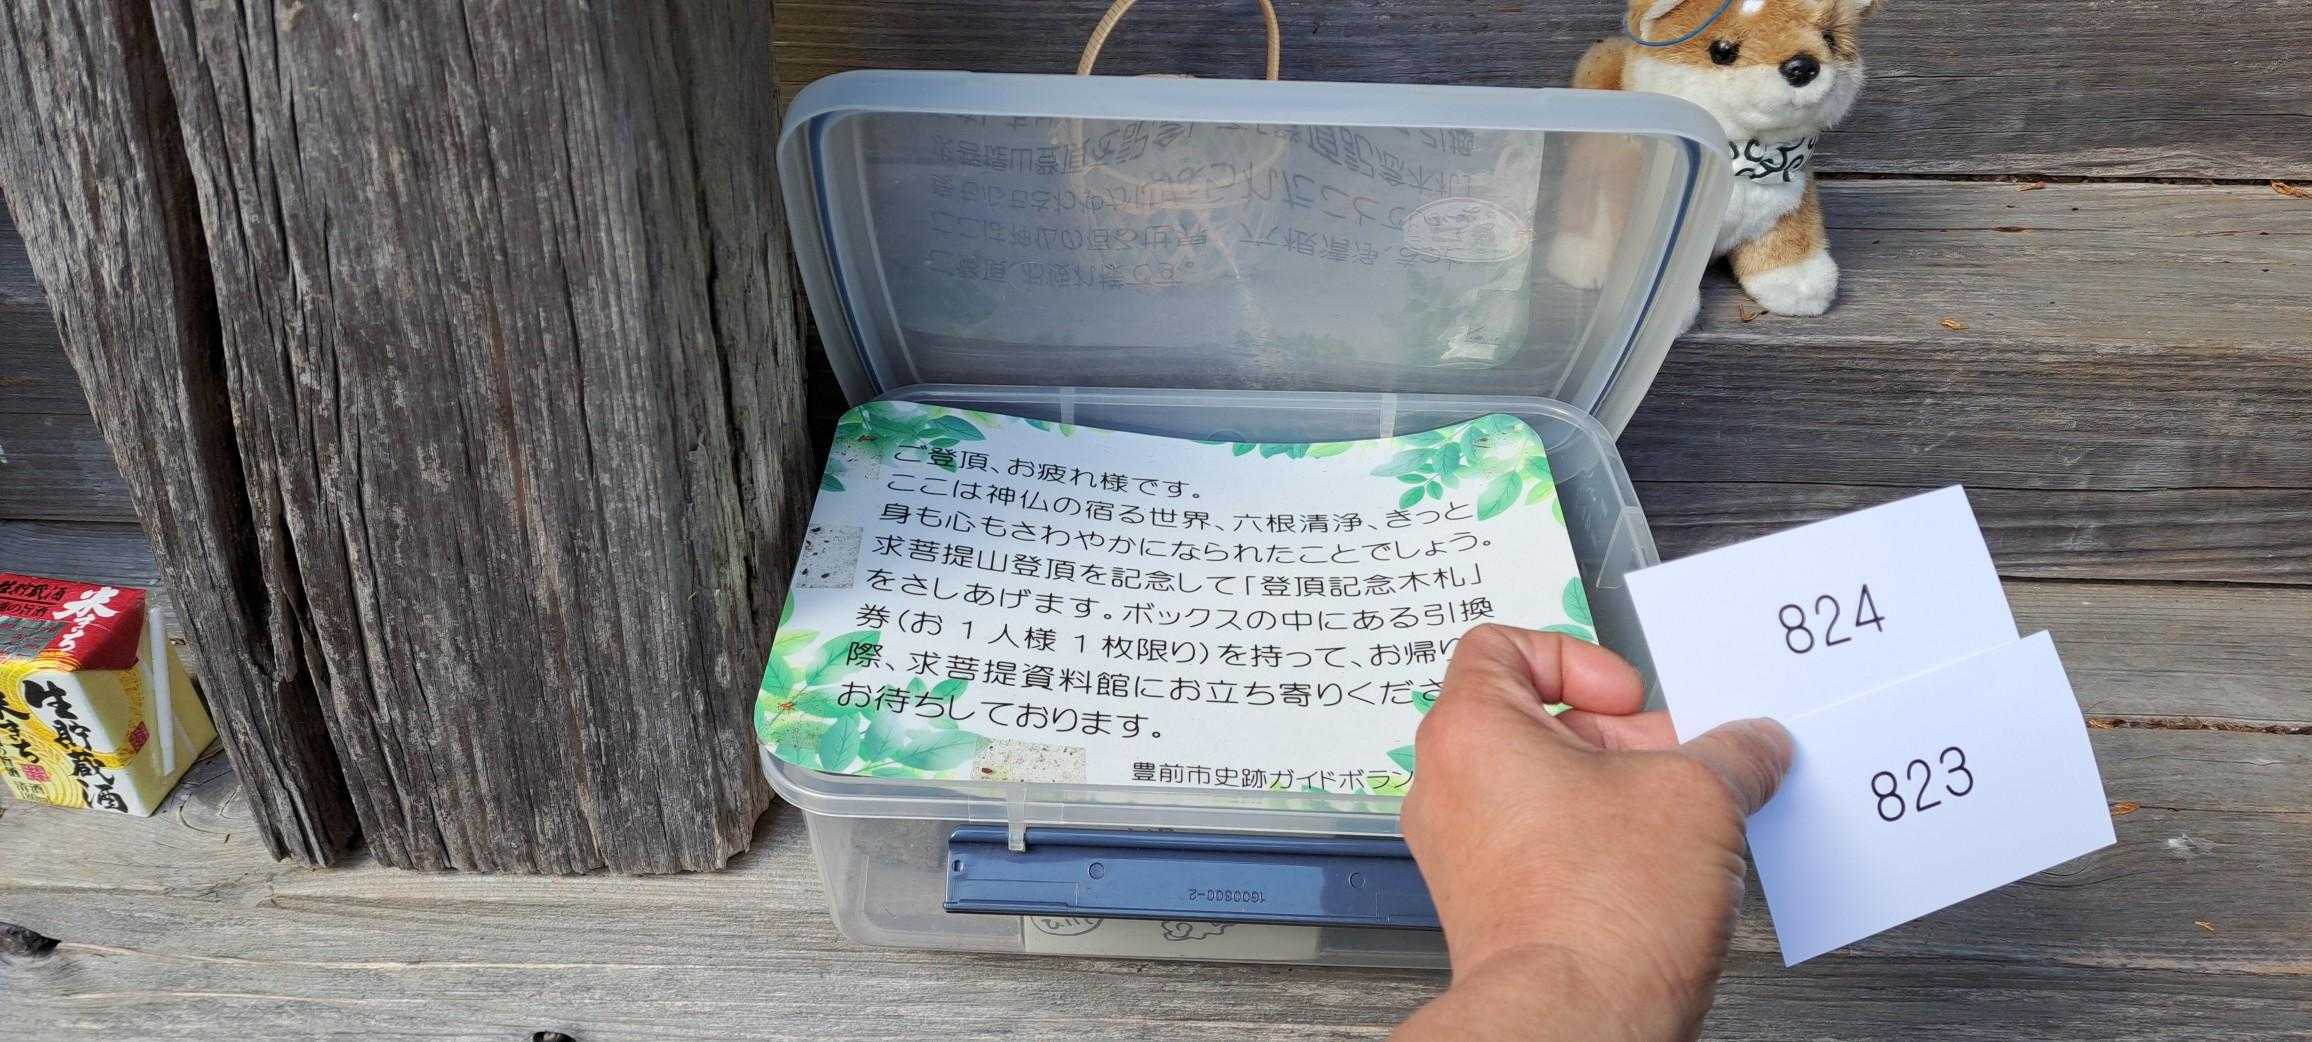 ご登頂、お疲れ様です。
ここは神仏の宿る世界、六根清浄、きっと
身も心もさわやかになられたことでしょう。
求菩提山登頂を記念して「登頂記念木札」
をさしあげます。ボックスの中にある引換
券(お1人様1枚限り)を持って、お帰り
際、求菩提資料館にお立ち寄りくださ
お待ちしております。
豊前市史跡ガイドボラン
824
823
生貯蔵酒